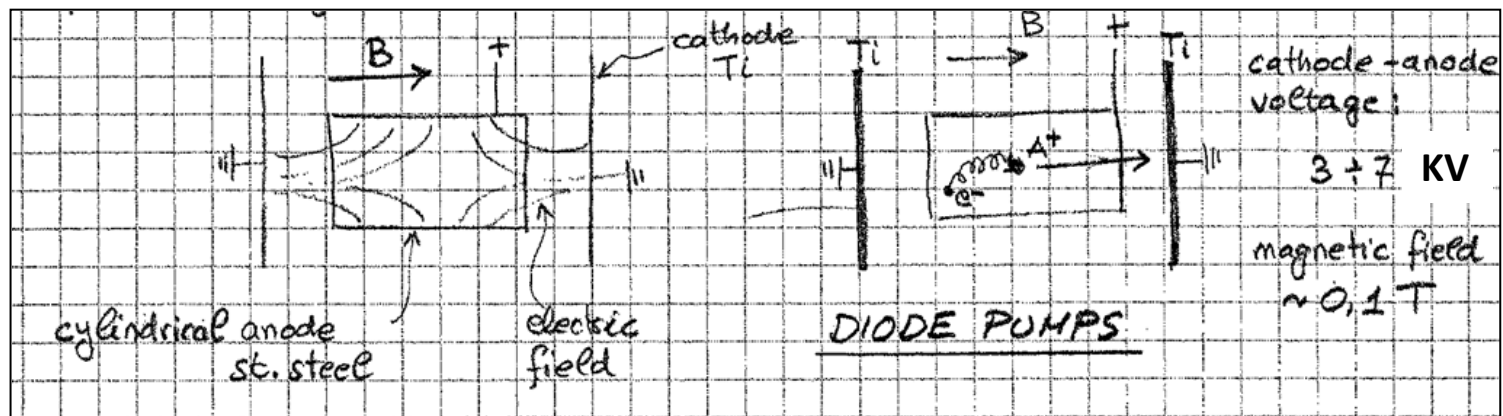 B
+
cathode
Ti
cylindrical anode
st. steel
electric
field
Ti
B
+
Ti
A+
e-
DIODE PUMPS
cathode-anode
voltage:
3 ÷ 7 KV
magnetic field
~ 0,1 T